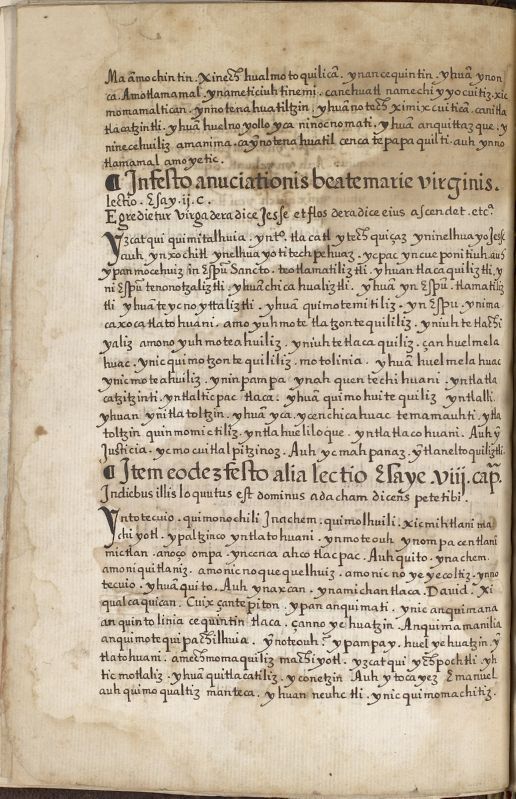 Ma amo chintin. xinech hualmotoquilicā. ynancequintin. yhuā ynon
ca. Amo tlamamal. ynameticiuhtinemi. ca nehuatl namechiyyocuitiz. xic
momamaltican. ynnotenahuatiltzin, yhuā notech ximixcuiticā. ca nitla
tlacatzintli. yhuā huel noyollo yca ninocnomati. yhuā anquittazque. y
ninecehuiliz amanima. ca ynotenahuatil cenca tepapaquilti. auh ynno
tlamamal amo yetic.
¶ In festo anuciationis beate marie virginis.
lectio. Esay. ij. c.
Egredietur virga de radice Jesse et flos de radice eius ascendet. etcª.
Yzcatqui quimitalhuia. yntº. tlacatl ytech quiçaz yninelhuayo Jesse
auh ynxochitl ynelhuayotitech pehuaz. ycpac yncueponitiuh. auh
ypan mocehuiz in Espū Sancto. teotlamatiliztli, yhuan tlacaquiliztli, y
ni Espū tenonotzaliztli. yhuā chicahualiztli. yhuā yn Espū. tlamatiliz
tli yhuā teycnoyttaliztli. yhuā quimotemitiliz. yn Espu. ynima
caxoca tlatohuani. amo yuh motetlatzontequililiz. yniuh tetlachi
yaliz amono yuh moteahuiliz. yniuh tetlacaquiliz. çan huel mela
huac. ynic quimotzontequililiz. motolinia. yhuā huel melahuac
ynic moteahuiliz. ynin pampa ynahquentechihuani. yntlatla
catzitzinti. yntlalticpac tlaca. yhuā quimohuitequiliz yntlalli.
yhuan ynitlatoltzin, yhuā yca. ycenchicahuac temamauhti. ytla
toltzin quinmomictiliz. yntlahueliloque. yntlatlacohuani. Auh y
Justicia. ycmocuitlalpitzinoz. Auh ycmahpanaz. ytlaneltoquiliztli.
¶ Item eodez festo alia lectio Esaye. viij. cap.
In dicbus illis loquutus est dominus ad acham dicens pete tibi.
Yn totecuio. quimonochili Inachem. quimolhuili. xicmihtlani ma
chiyotl. ypaltzinco yntlatohuani. ynmoteouh ynompa centlani
mictlan. anoço ompa yncenca ahco tlacpac. Auh quito. ynachem.
amo niquitlaniz. amo nicnoquequelhuiz. amo nicnoyeyecoltiz. ynno
tecuio. yhuā quito. Auh ynaxcan. ynamichantlaca. David. xi
qualcaquican. Cuix çan tepiton. ypan anquimati. ynic anquimana
anquintolinia cequintin tlaca. çanno yehuatzin. Anquimamanilia
anquimotequipachilhuia. ynoteouh? ypampay. huel yehuatzin. y
tlatohuani. amechmomaquiliz machiyotl. yzcatqui ychpochtli. yh
tic motlaliz. yhuā quitlacatiliz. yconetzin Auh ytocayez Emanuel
auh quimoqualtiz manteca. yhuan neuhctli. ynic quimomachitiz.